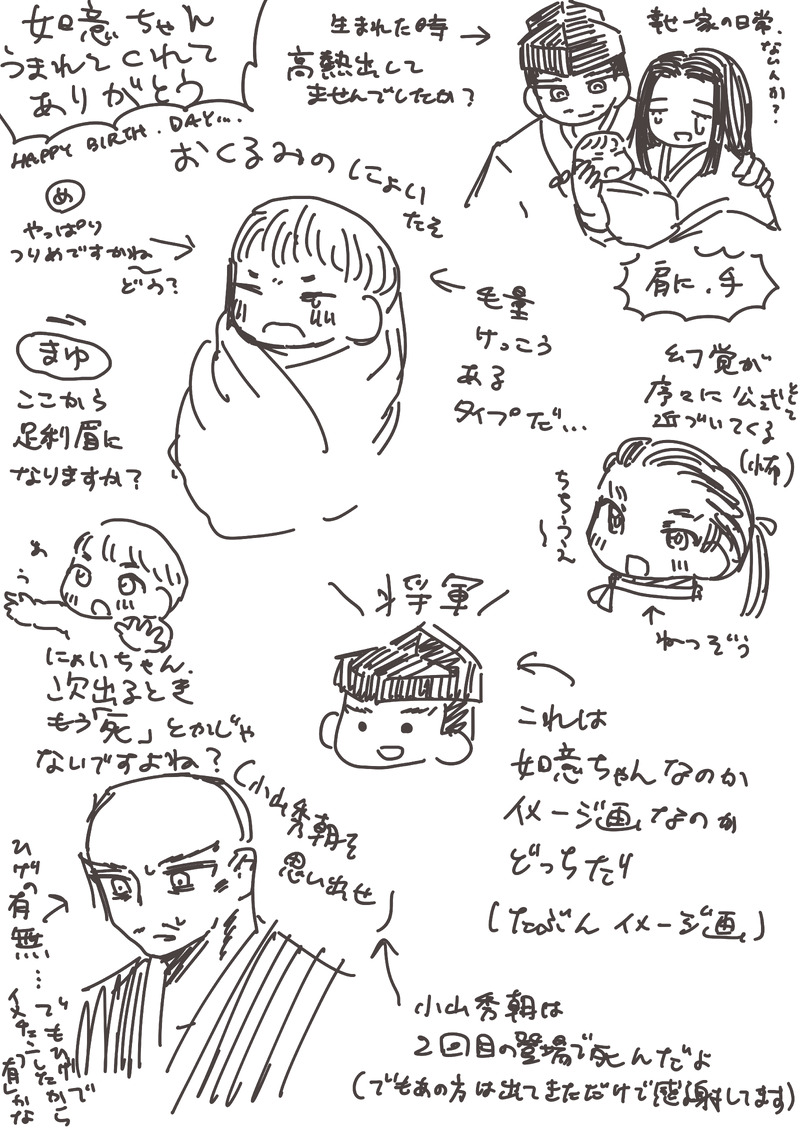 如意ちゃん
うまれてくれて
ありがとう
HAPPY BIRTH. DAY...
生まれた時
高熱出して
ませんでしたか?
一家の日常。
ないんか?
肩に、手
おくるみの にょい
たそ
め
やっぱり
つりめですかね
どう?
毛量
けっこう
ある
タイプだ…
まゆ
ここから
足利眉に
なりますか?
幻覚が
序々に 公式と
近づいてくる
(怖)
ちちうえ~
ねっぞう
あ
う
にょいちゃん、
次出るとき
もう「死」とかじゃ
ないですよね?
(小山秀朝を
思い出せ)
将軍
これは
如意ちゃんなのか
イメージ画なのか
どっちだ!!
(たぶん イメージ画)
ひげの有無…
でもひげで
イメチェンしたから
有りかな
小山秀朝は
2回目の登場で死んだよ
(でもあの方は出てきただけで感謝してます)